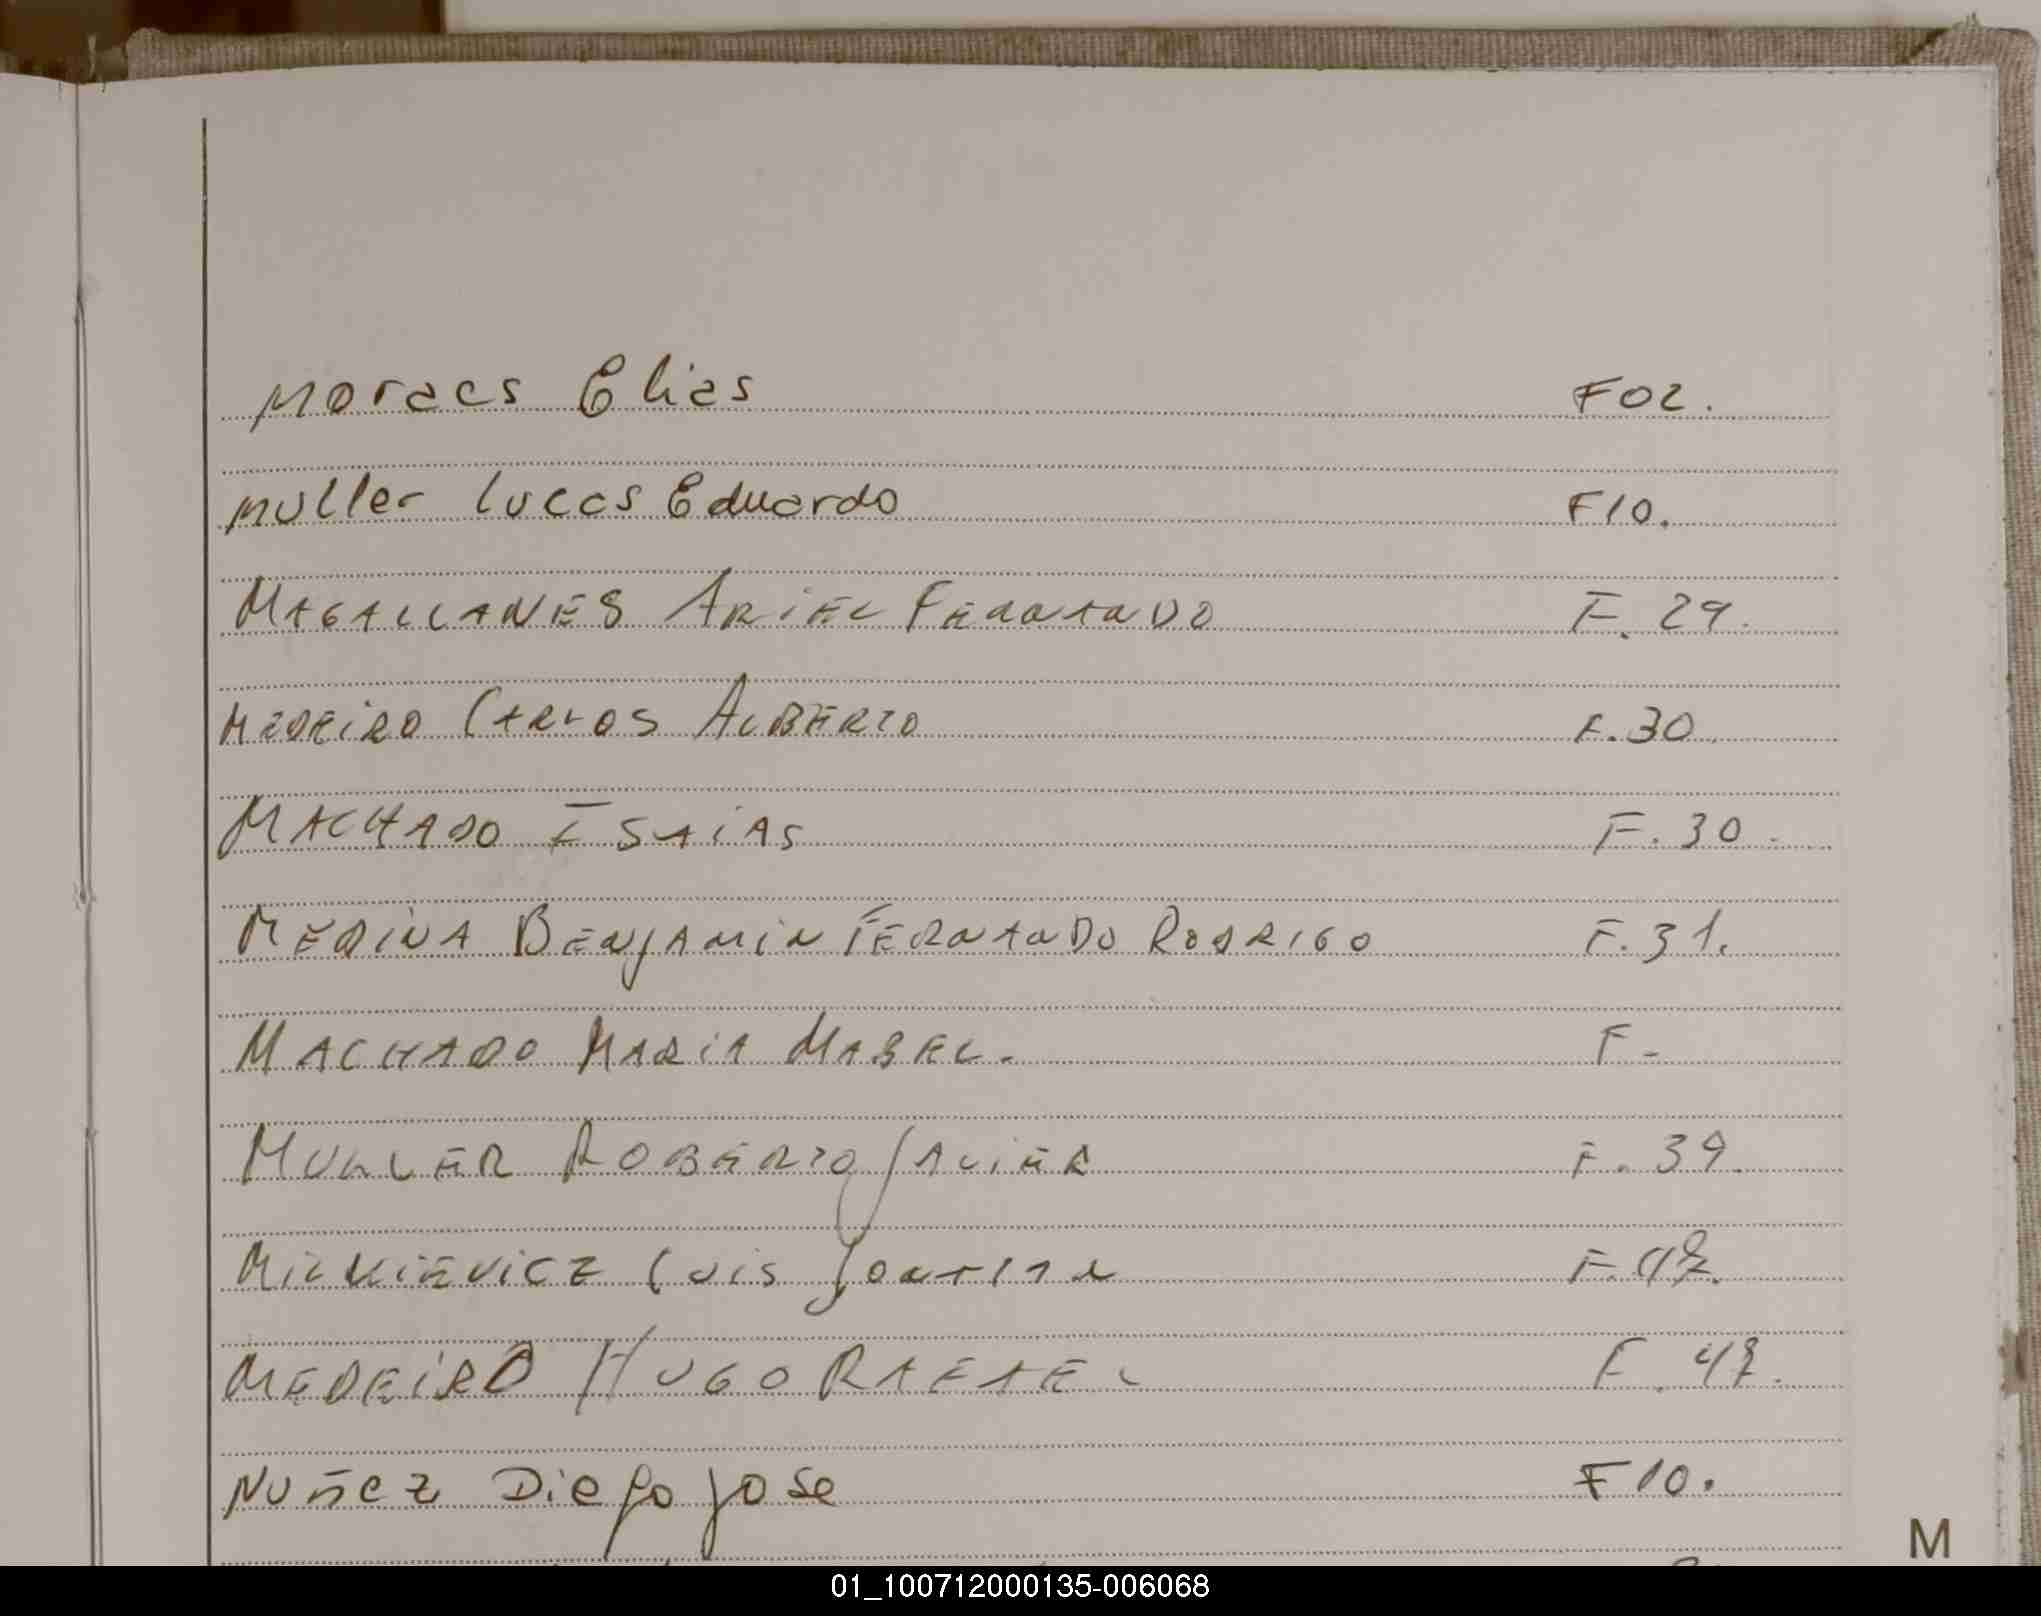 Moraes Elias F02.
Muller Lucas Eduardo F10.
MAGALLANES ARIEL FERNANDO F. 29.
MEDEIRO CARLOS ALBERTO F. 30.
MACHADO ESAIAS F. 30.
MEDINA BENJAMIN FERNANDO RODRIGO F. 31.
MACHADO MARIA MABEL. F-
MULLER ROBERTO JAVIER F. 39.
LUIS F.
MEDEIRO HUGO RAFAEL F.
Nuñez Diego Jose F10.
M
01_100712000135-006068